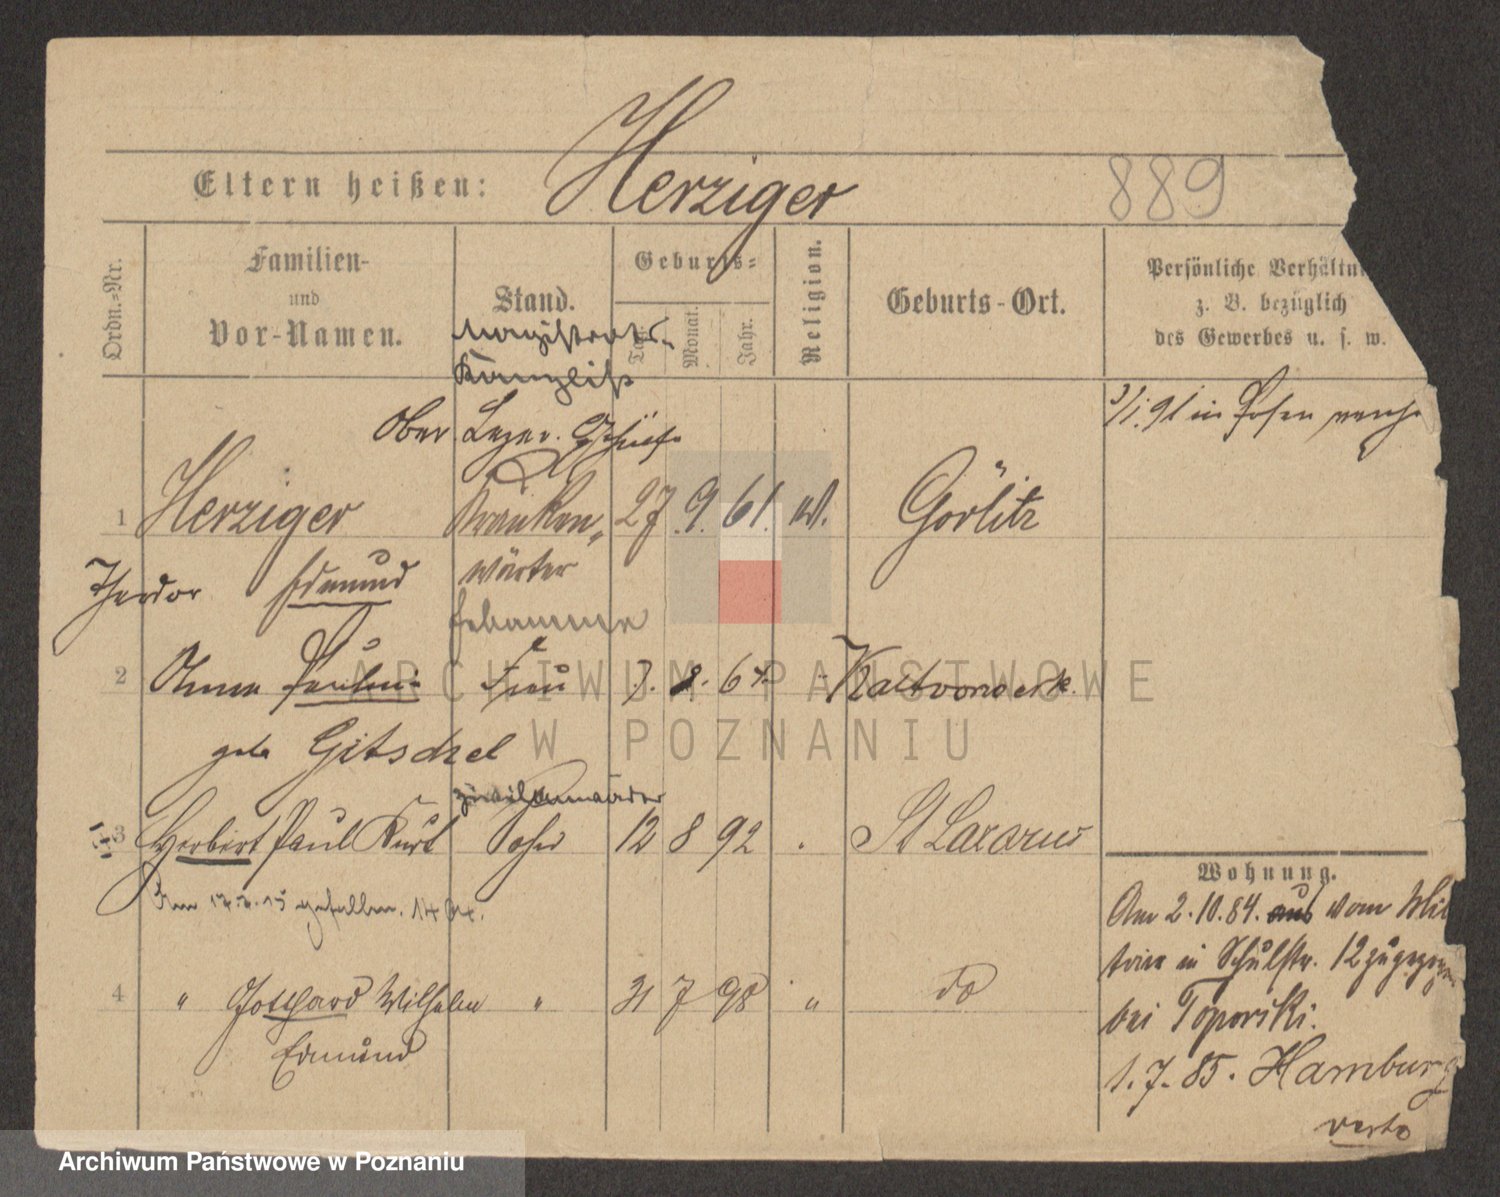 Eltern heißen: Herziger 889
Ordn.-Nr.
Familien-
und
Vor-Namen.
Stand.
Geburts-
Tag. Monat. Jahr.
Religion.
Geburts-Ort.
Persönliche Verhältn
z. B. bezüglich
des Gewerbes u. s. w.
Magistrats-
Kanzlist
Ober Lazar.
3/1. 91 in Posen
1 Herziger Kranken- 27. 9. 61. Görlitz
Theodor Edmund wärter
Hebamme
2 Anna Paulin- Frau 7. 8. 64. Kaltvorwerk.
geb Gitschel
3 Herbert Paul Kurt Sohn 12 8 92 St Lazarus
gefallen.
4 " Gotthard Wilhelm " 31 7 98 " do
Edmund
Wohnung.
Am 2. 10. 84. aus vom Mili
tair in Schulstr. 12 zugezogen
bei Toporski.
1. 7. 85. Hamburg
verte
ARCHIWUM PAŃSTWOWE
W POZNANIU
Archiwum Państwowe w Poznaniu